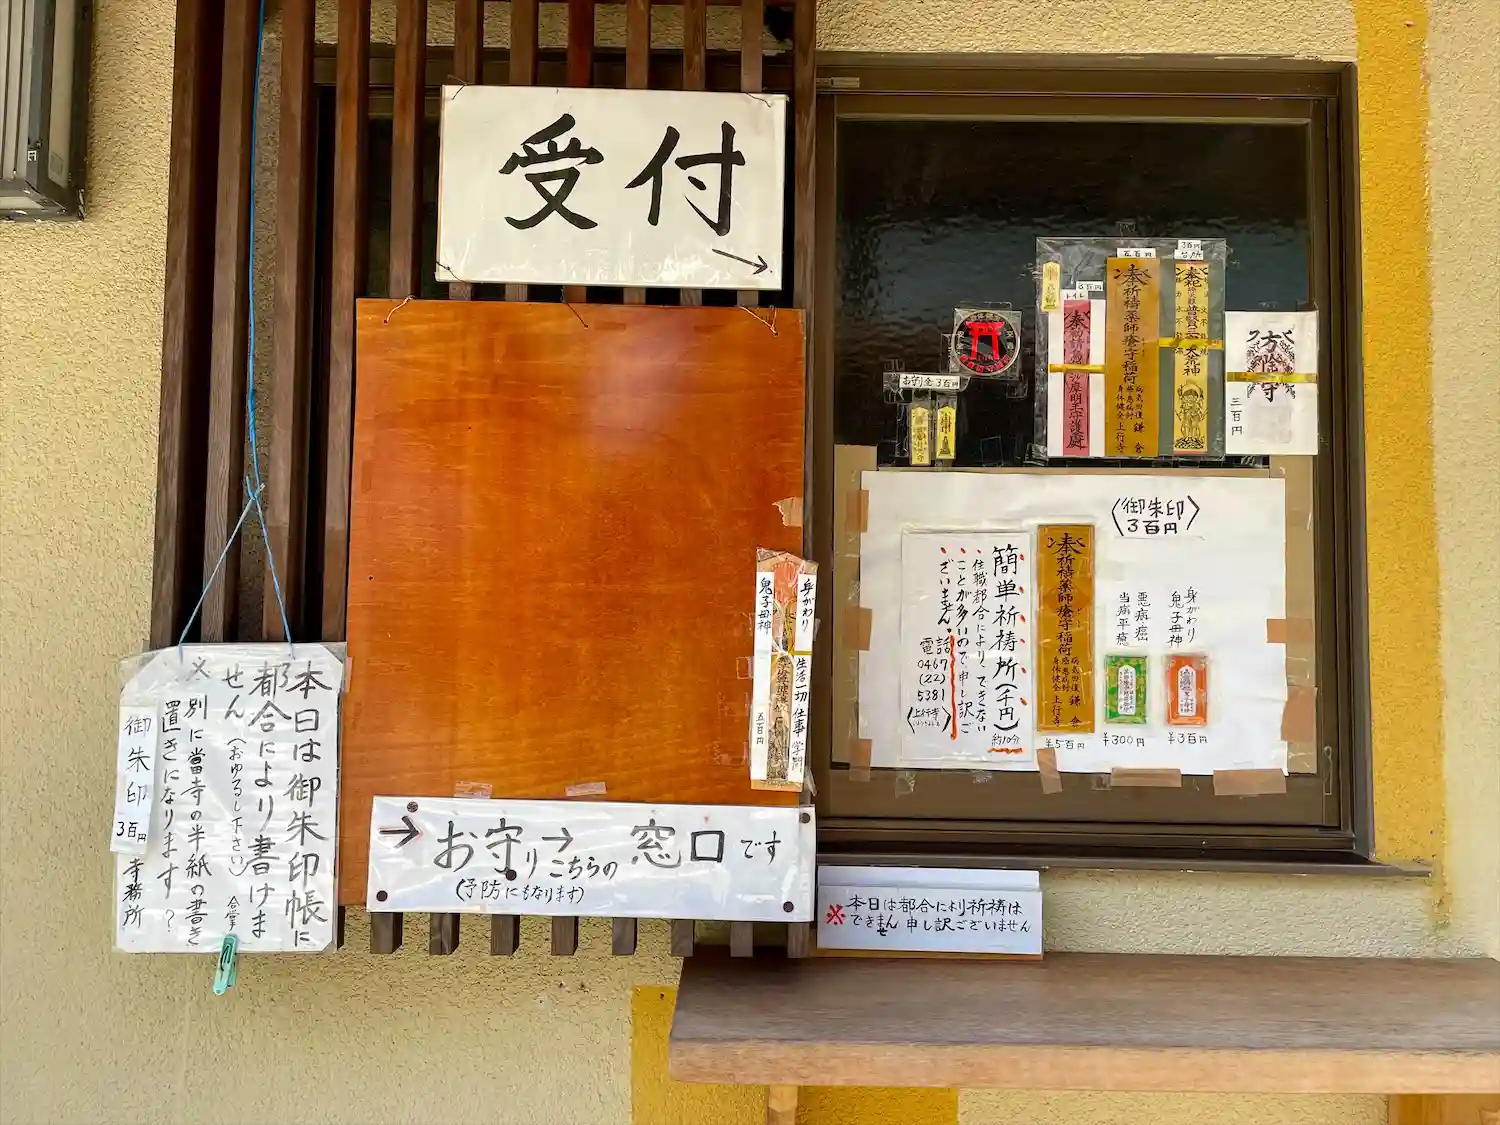 受付
→
本日は御朱印帳に
都合により書けま
せん(おゆるし下さい)合掌
※別に當寺の半紙の書き
置きになります?
寺務所
御朱印
3百円
身がわり
鬼子母神
生活一切 仕事 学問
五百円
→お守り→こちらの窓口です
(予防にもなります)
※本日は都合により祈祷は
できません 申し訳ございません
お守り各3百円
五百円
3百円
台所
3百円
トイレ
奉祈祷薬師瘡守稲荷
病気回復
悪病封
身体健全
鎌倉
上行寺
方除守
三百円
〈御朱印
3百円〉
簡単祈祷所(千円)
約10分
、住職都合により、できない
、ことが多いので申し訳ご
、ざいません。
電話
0467
(22)
5381
(上行寺)
奉祈祷薬師瘡守稲荷
病気回復
悪病封
身体健全
鎌倉
上行寺
¥5百円
悪病癌
当病平癒
¥300円
身がわり
鬼子母神
¥3百円